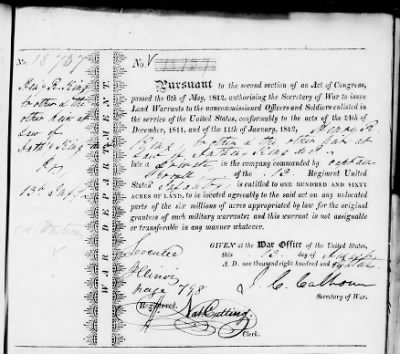 No. 18737
No.
Pursuant to the second section of an Act of Congress,
passed the 6th of May, 1812, authorising the Secretary of War to issue
Land Warrants to the noncommissioned Officers and Soldiers enlisted in
the service of the United States, conformably to the acts of the 24th of
December, 1811, and of the 11th of January, 1812, Henry R.
King, brother & the other heir at
Law of
late a in the company commanded by captain
of the 13 Regiment United
States Infantry, is entitled to ONE HUNDRED AND SIXTY
ACRES OF LAND, to be located agreeably to the said act on any unlocated
part of the six millions of acres appropriated by law for the original
grantees of such military warrants; and this warrant is not assignable
or transferable in any manner whatever.
GIVEN at the War Office of the United States,
this day of
A. D. one thousand eight hundred and
J. C. Calhoun
Secretary of War.
Located
Illinois
page 798
Registered,
Nat Cutting
Clerk.
WAR DEPARTMENT.
Henry R. King
brother & the
other heir at
Law of
King
13th Inf